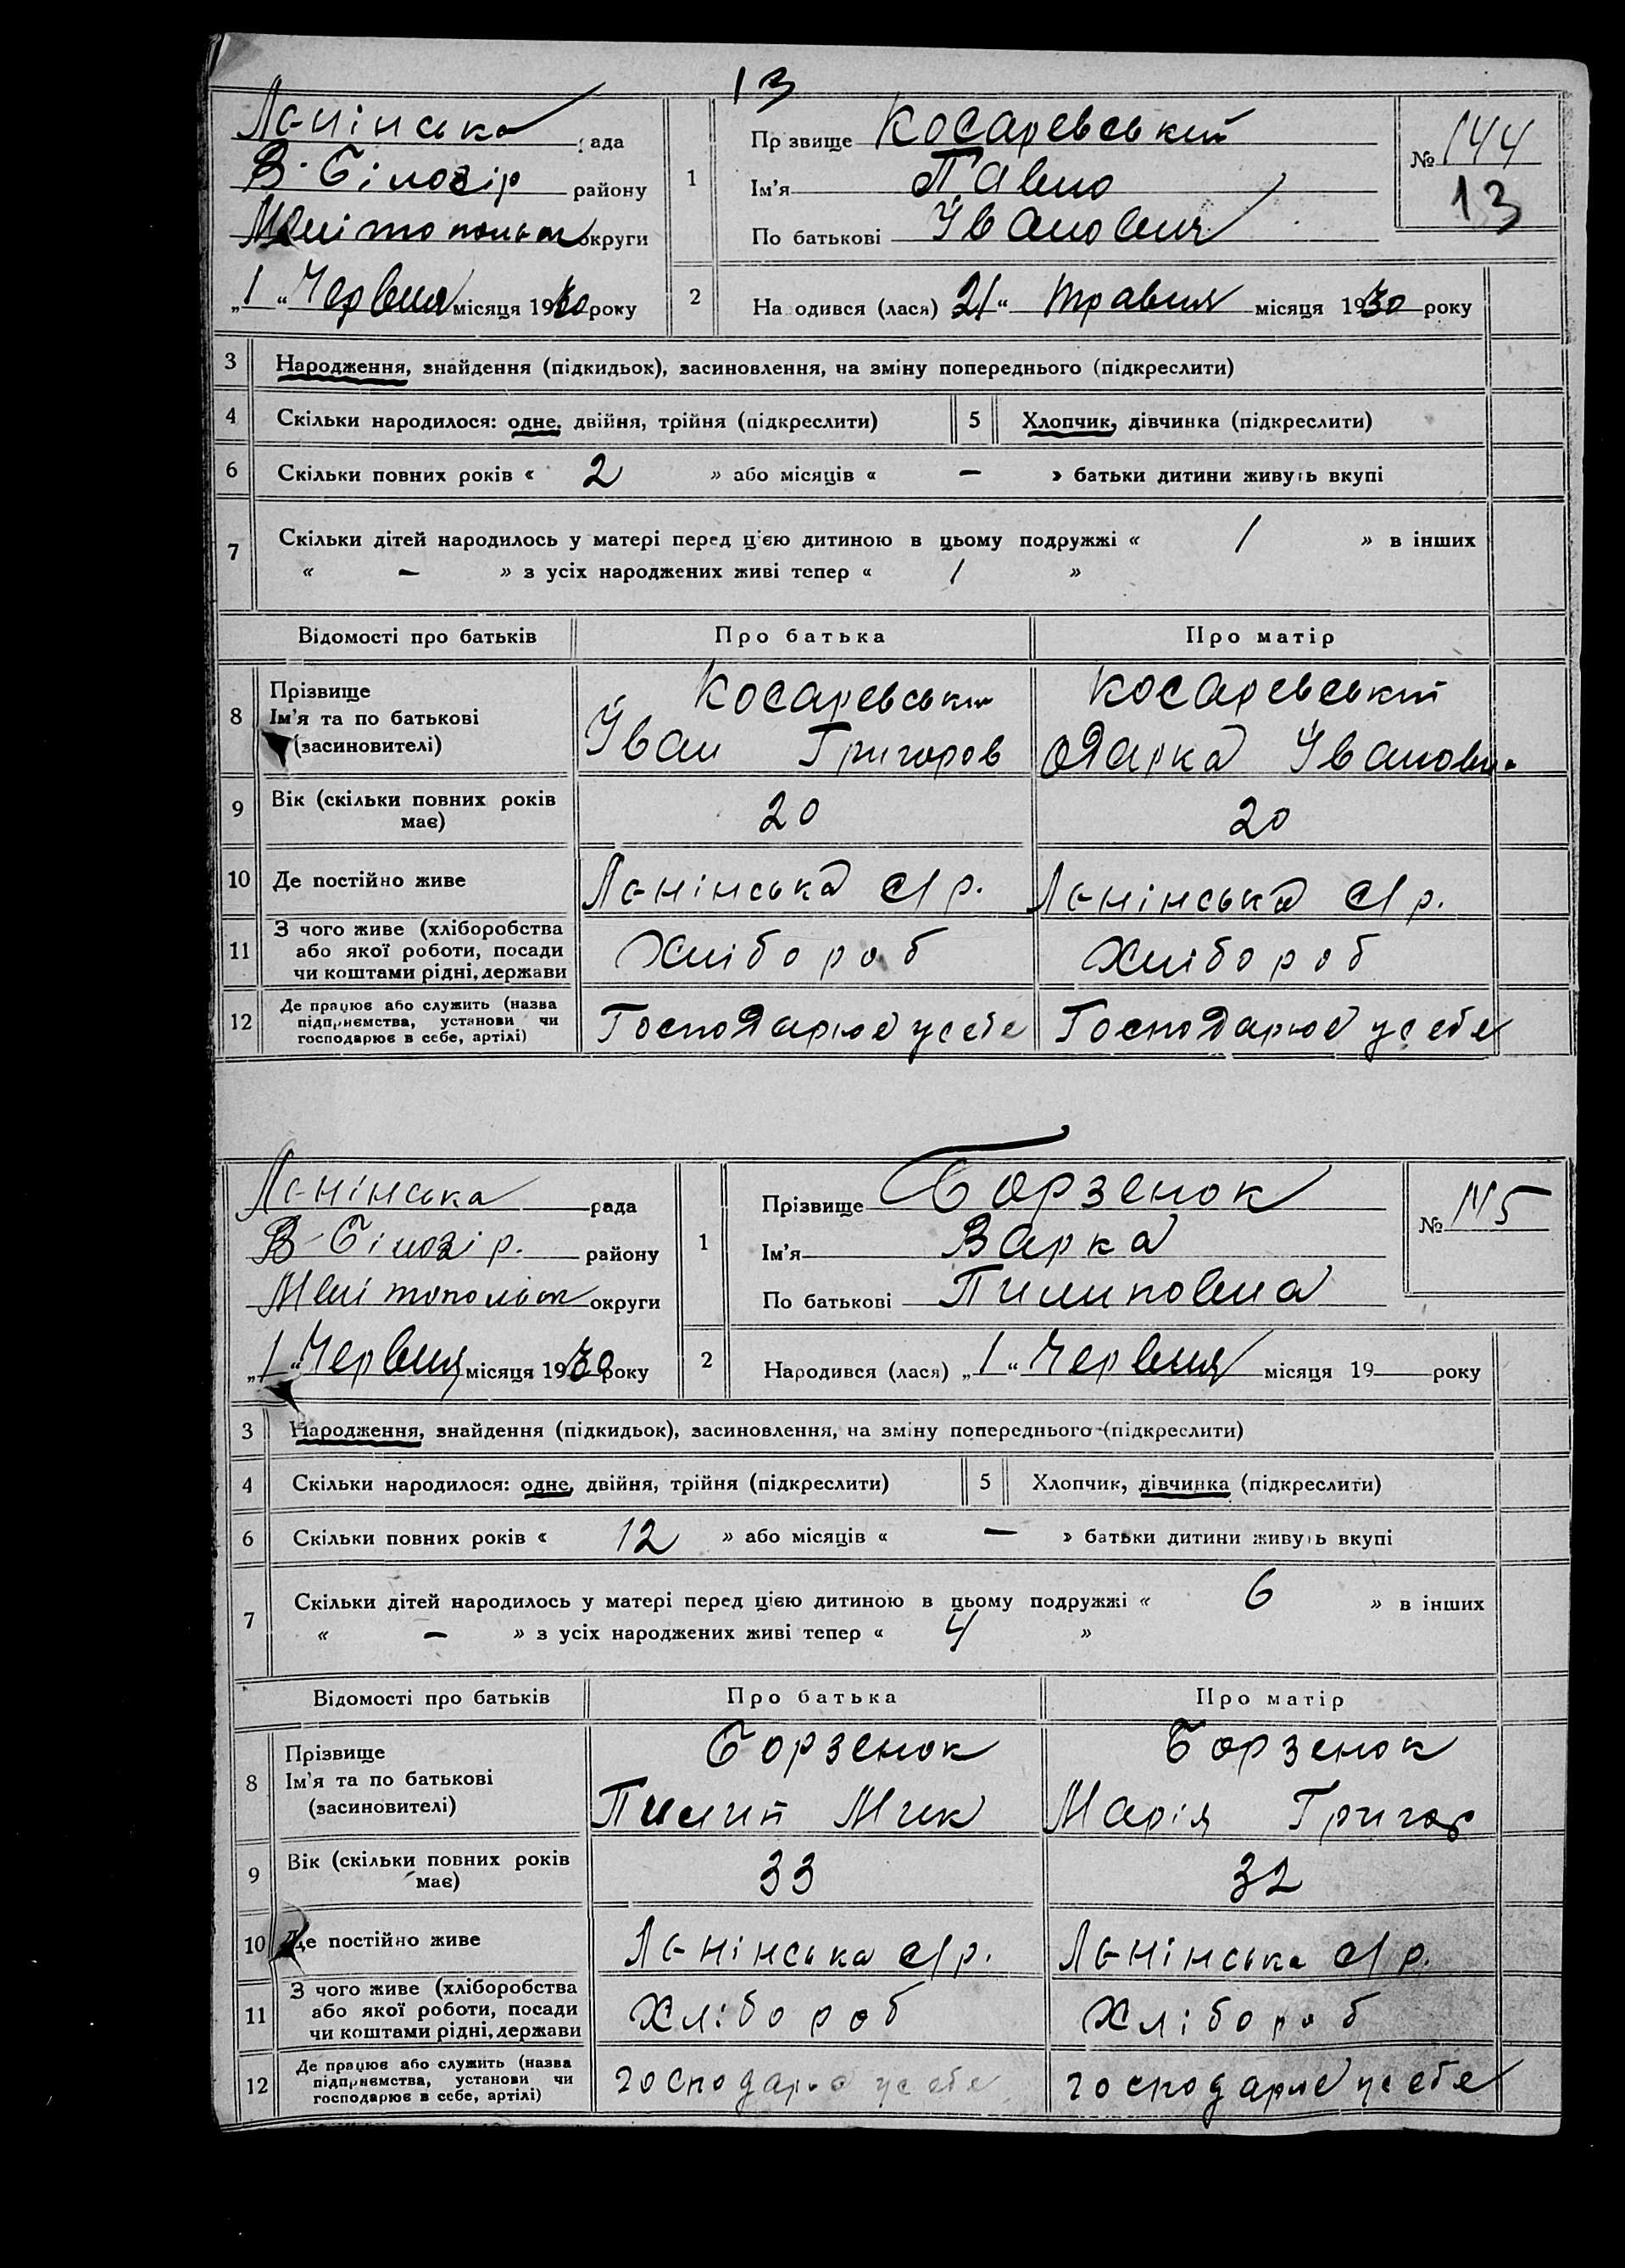 13
Лєнінська рада
В-Білозір району
Мелітопольск округи
„1“ Червня місяця 1930 року
1
Прізвище Косаревський
Ім’я Павло
По батькові Іванович
№ 144
13
2
На одився (лася) 21“ травня місяця 1930 року
3 Народження, знайдення (підкидьок), засиновлення, на зміну попереднього (підкреслити)
4 Скільки народилося: одне, двійня, трійня (підкреслити) 5 Хлопчик, дівчинка (підкреслити)
6 Скільки повних років « 2 » або місяців « — » батьки дитини живуть вкупі
7 Скільки дітей народилось у матері перед цією дитиною в цьому подружжі « 1 » в інших
« — » з усіх народжених живі тепер « 1 »
Відомості про батьків Про батька Про матір
8 Прізвище Косаревський Косаревський
Ім’я та по батькові
(засиновителі) Іван Григоров Одарка Івановн
9 Вік (скільки повних років має) 20 20
10 Де постійно живе Лєнінська с/р. Лєнінська с/р.
11 З чого живе (хліборобства
або якої роботи, посади
чи коштами рідні, держави Хлібороб Хлібороб
12 Де працює або служить (назва
підприємства, установи чи
господарює в себе, артілі) Господарює у себе Господарює у себе
Лєнінська рада
В-Білозір. району
Мелітопольск округи
„1“ Червня місяця 1930 року
1
Прізвище Борзенок
Ім’я Варка
По батькові Пилиповна
№ 145
2
Народився (лася) „1“ Червня місяця 19 року
3 Народження, знайдення (підкидьок), засиновлення, на зміну попереднього (підкреслити)
4 Скільки народилося: одне, двійня, трійня (підкреслити) 5 Хлопчик, дівчинка (підкреслити)
6 Скільки повних років « 12 » або місяців « — » батьки дитини живуть вкупі
7 Скільки дітей народилось у матері перед цією дитиною в цьому подружжі « 6 » в інших
« — » з усіх народжених живі тепер « 4 »
Відомості про батьків Про батька Про матір
8 Прізвище Борзенок Борзенок
Ім’я та по батькові
(засиновителі) Пилип Мик Марія Григор
9 Вік (скільки повних років має) 33 32
10 Де постійно живе Лєнінська с/р. Лєнінська с/р.
11 З чого живе (хліборобства
або якої роботи, посади
чи коштами рідні, держави Хлібороб Хлібороб
12 Де працює або служить (назва
підприємства, установи чи
господарює в себе, артілі) господарює у себе господарює у себе